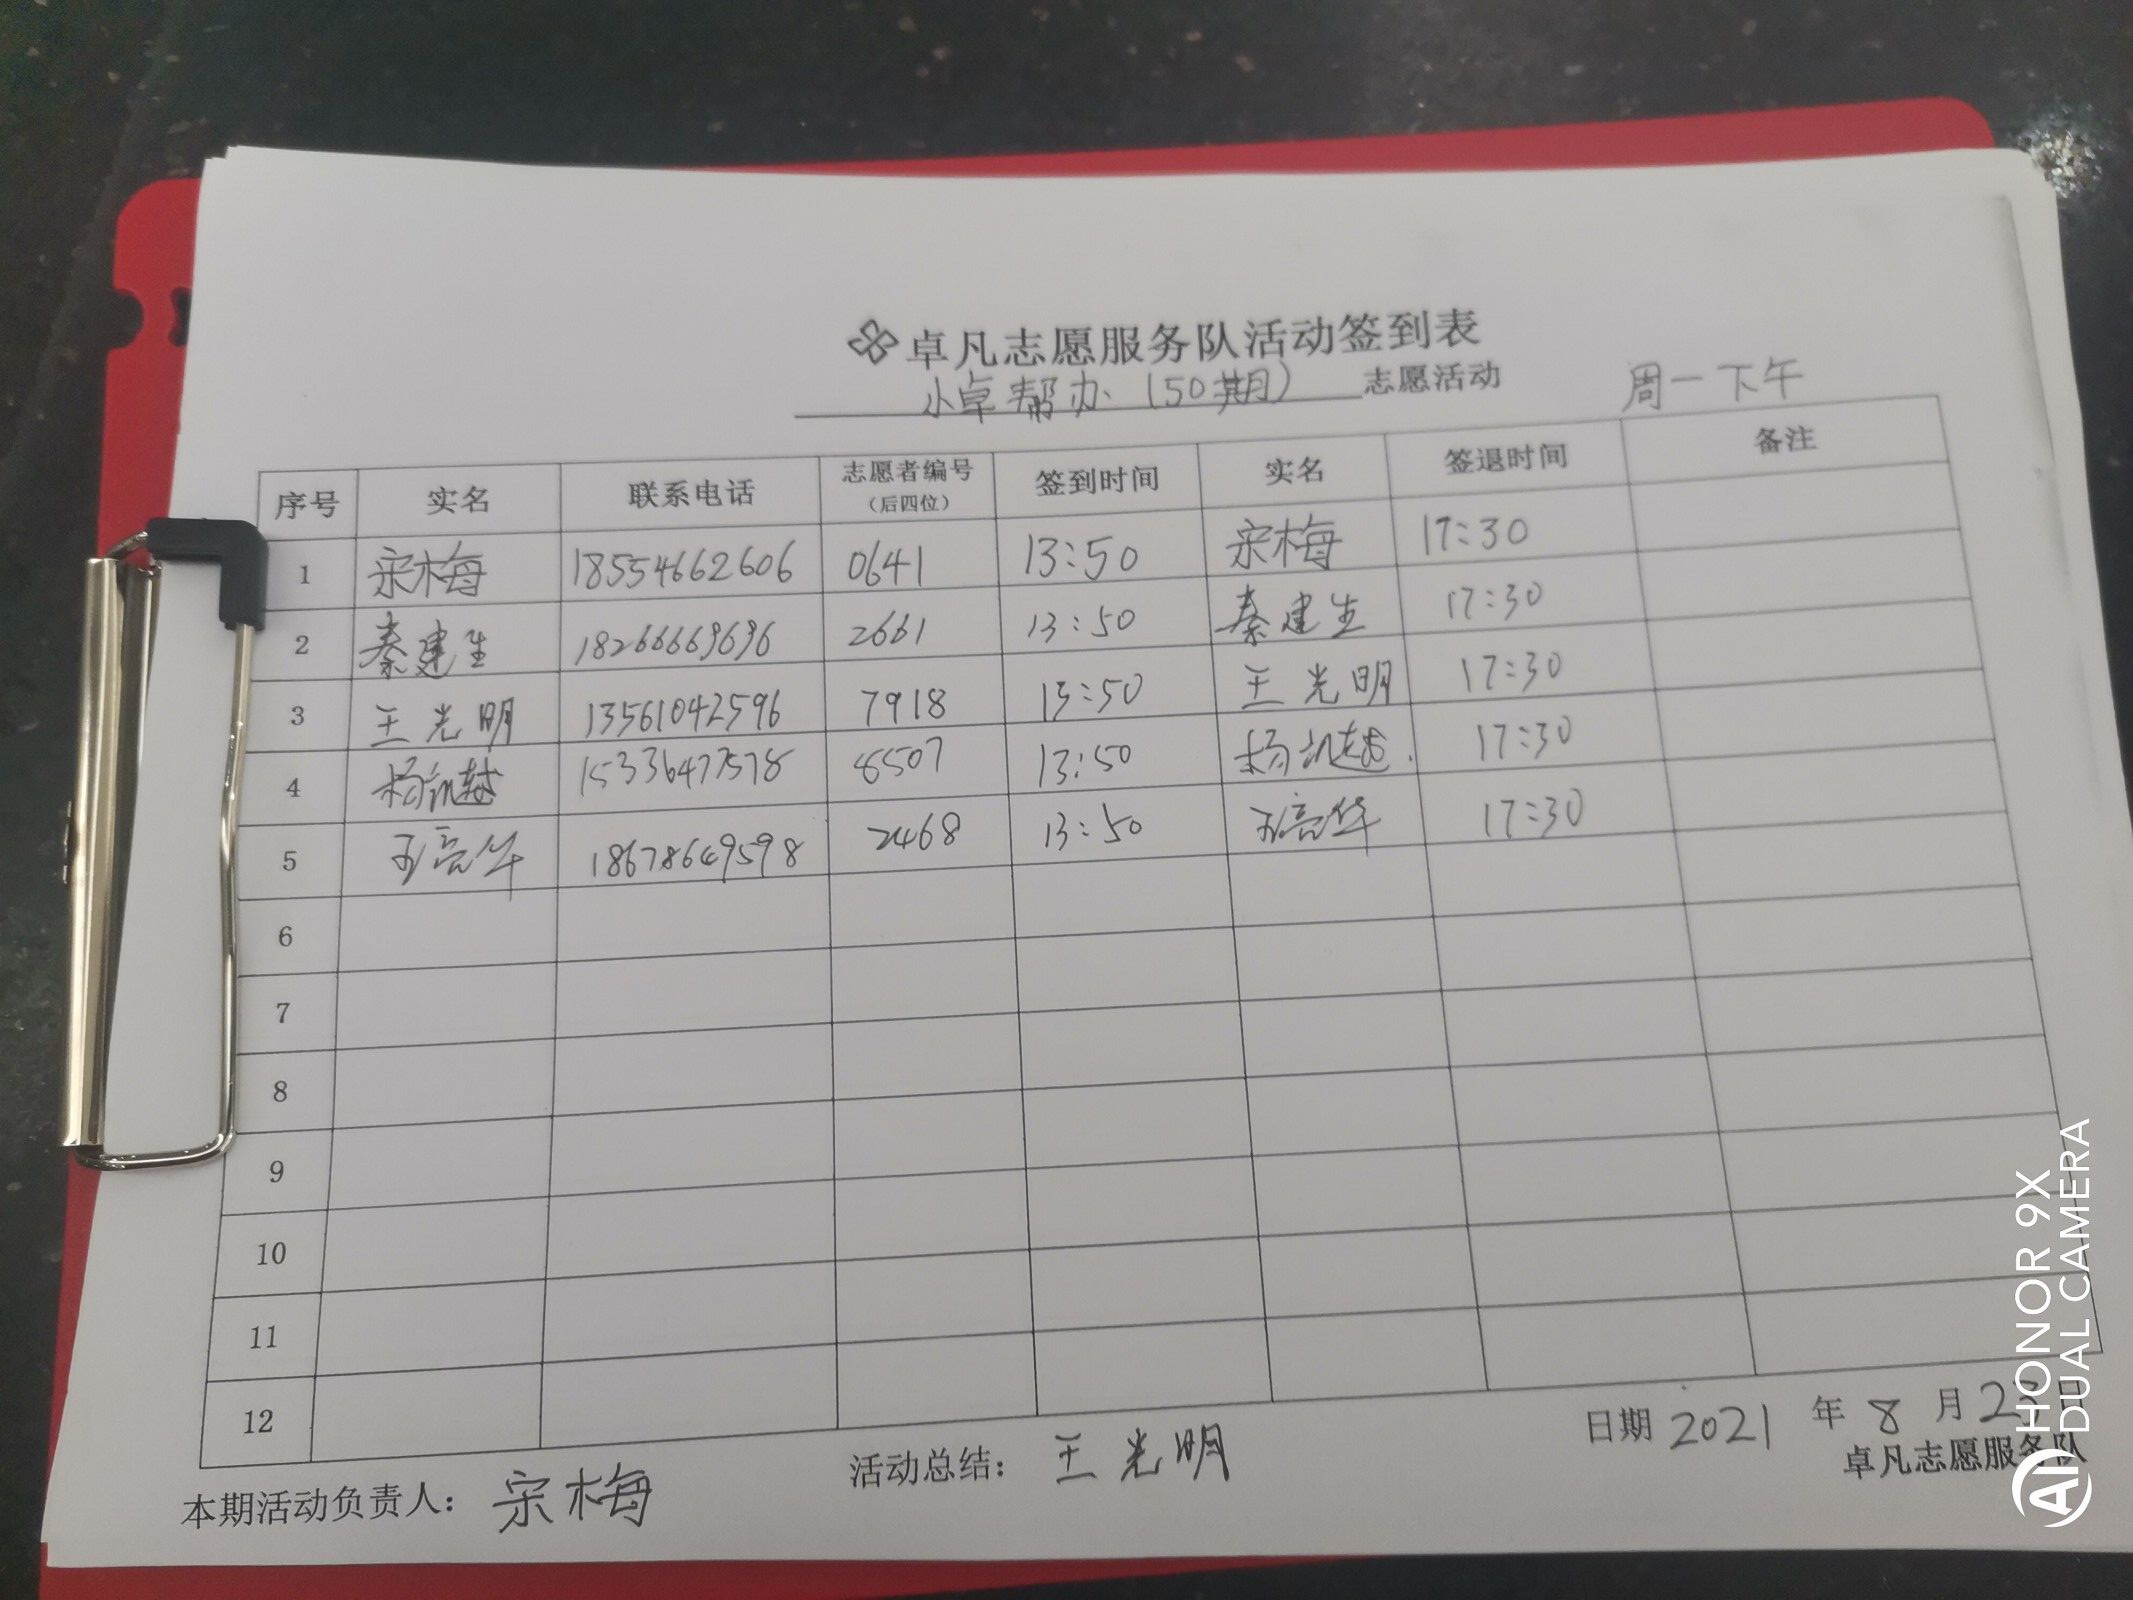 卓凡志愿服务队活动签到表
小卓帮办（50期） 志愿活动 周一下午
序号 实名 联系电话 志愿者编号（后四位） 签到时间 实名 签退时间 备注
1 宋梅 18554662606 0641 13:50 宋梅 17:30
2 秦建生 18266669696 2661 13:50 秦建生 17:30
3 王光明 13561042596 7918 13:50 王光明 17:30
4 15336477578 8507 13:50 17:30
5 王亮华 18678649598 2468 13:50 王亮华 17:30
6
7
8
9
10
11
12
本期活动负责人： 宋梅 活动总结： 王光明 日期 2021 年 8 月 23 日
卓凡志愿服务队
HONOR 9X
AI DUAL CAMERA